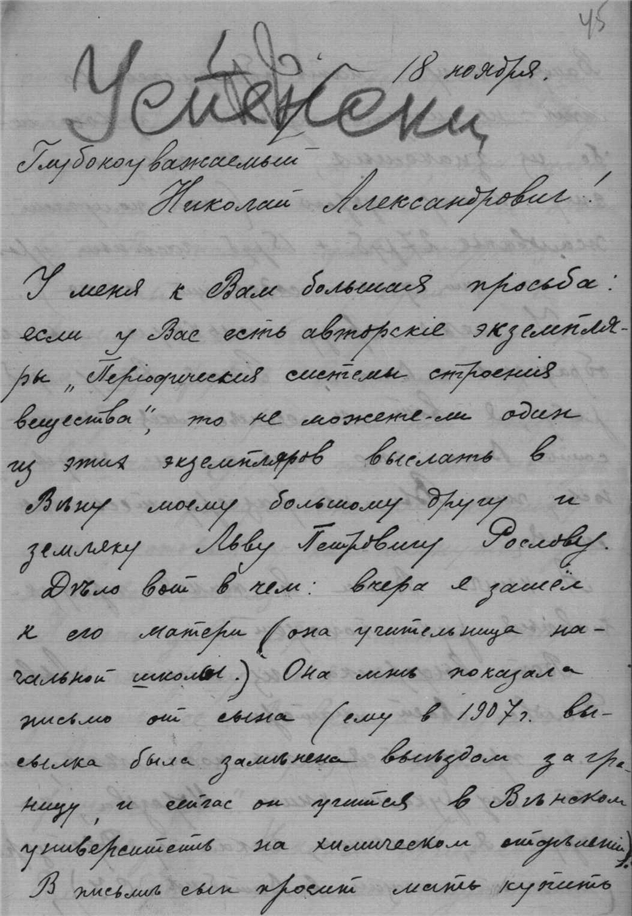 45
18 ноября.
Успенски
Глубокоуважаемый
Николай Александрович!
У меня к Вам большая просьба:
если у Вас есть авторскіе экземпля-
ры „Періодическія системы строенія
вещества", то не можете-ли один
из этих экземпляров выслать в
Вѣну моему большому другу и
земляку Льву Петровичу Рослову.
Дѣло вот в чем: вчера я зашел
к его матери (она учительница на-
чальной школы.) Она мнѣ показала
письмо от сына (ему в 1907 г. вы-
сылка была замѣнена выѣздом загра-
ницу, и сейчас он учится в Вѣнском
университетѣ на химическом отдѣленіи).
В письмѣ сын просит мать купить